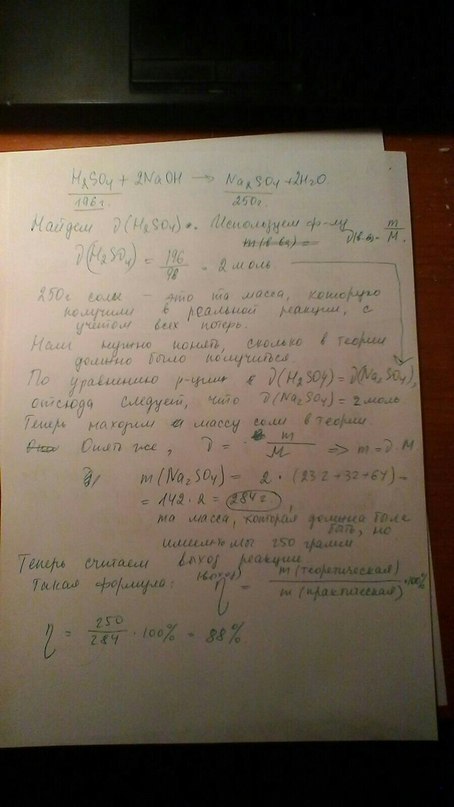 H2SO4 + 2NaOH → Na2SO4 + 2H2O
196г. 250г.
Найдем ν(H2SO4). Используем ф-му ν(в-ва)= m/M.
ν(H2SO4) = 196/98 = 2 моль
250г соли - это та масса, которую
получили в реальной реакции, с
учётом всех потерь.
Нам нужно понять, сколько в теории
должно было получиться.
По уравнению р-ции ν(H2SO4) = ν(Na2SO4),
отсюда следует, что ν(Na2SO4) = 2 моль.
Теперь находим массу соли в теории.
Опять же, ν = m/M => m = ν·M
m(Na2SO4) = 2 · (23·2+32+64) =
= 142·2 = 284г,
та масса, которая должна была
быть, но
имеем мы 250 грамм
Теперь считаем выход реакции
такая формула: (выход) η = m(теоретическая)/m(практическая) · 100%
η = 250/284 · 100% = 88%